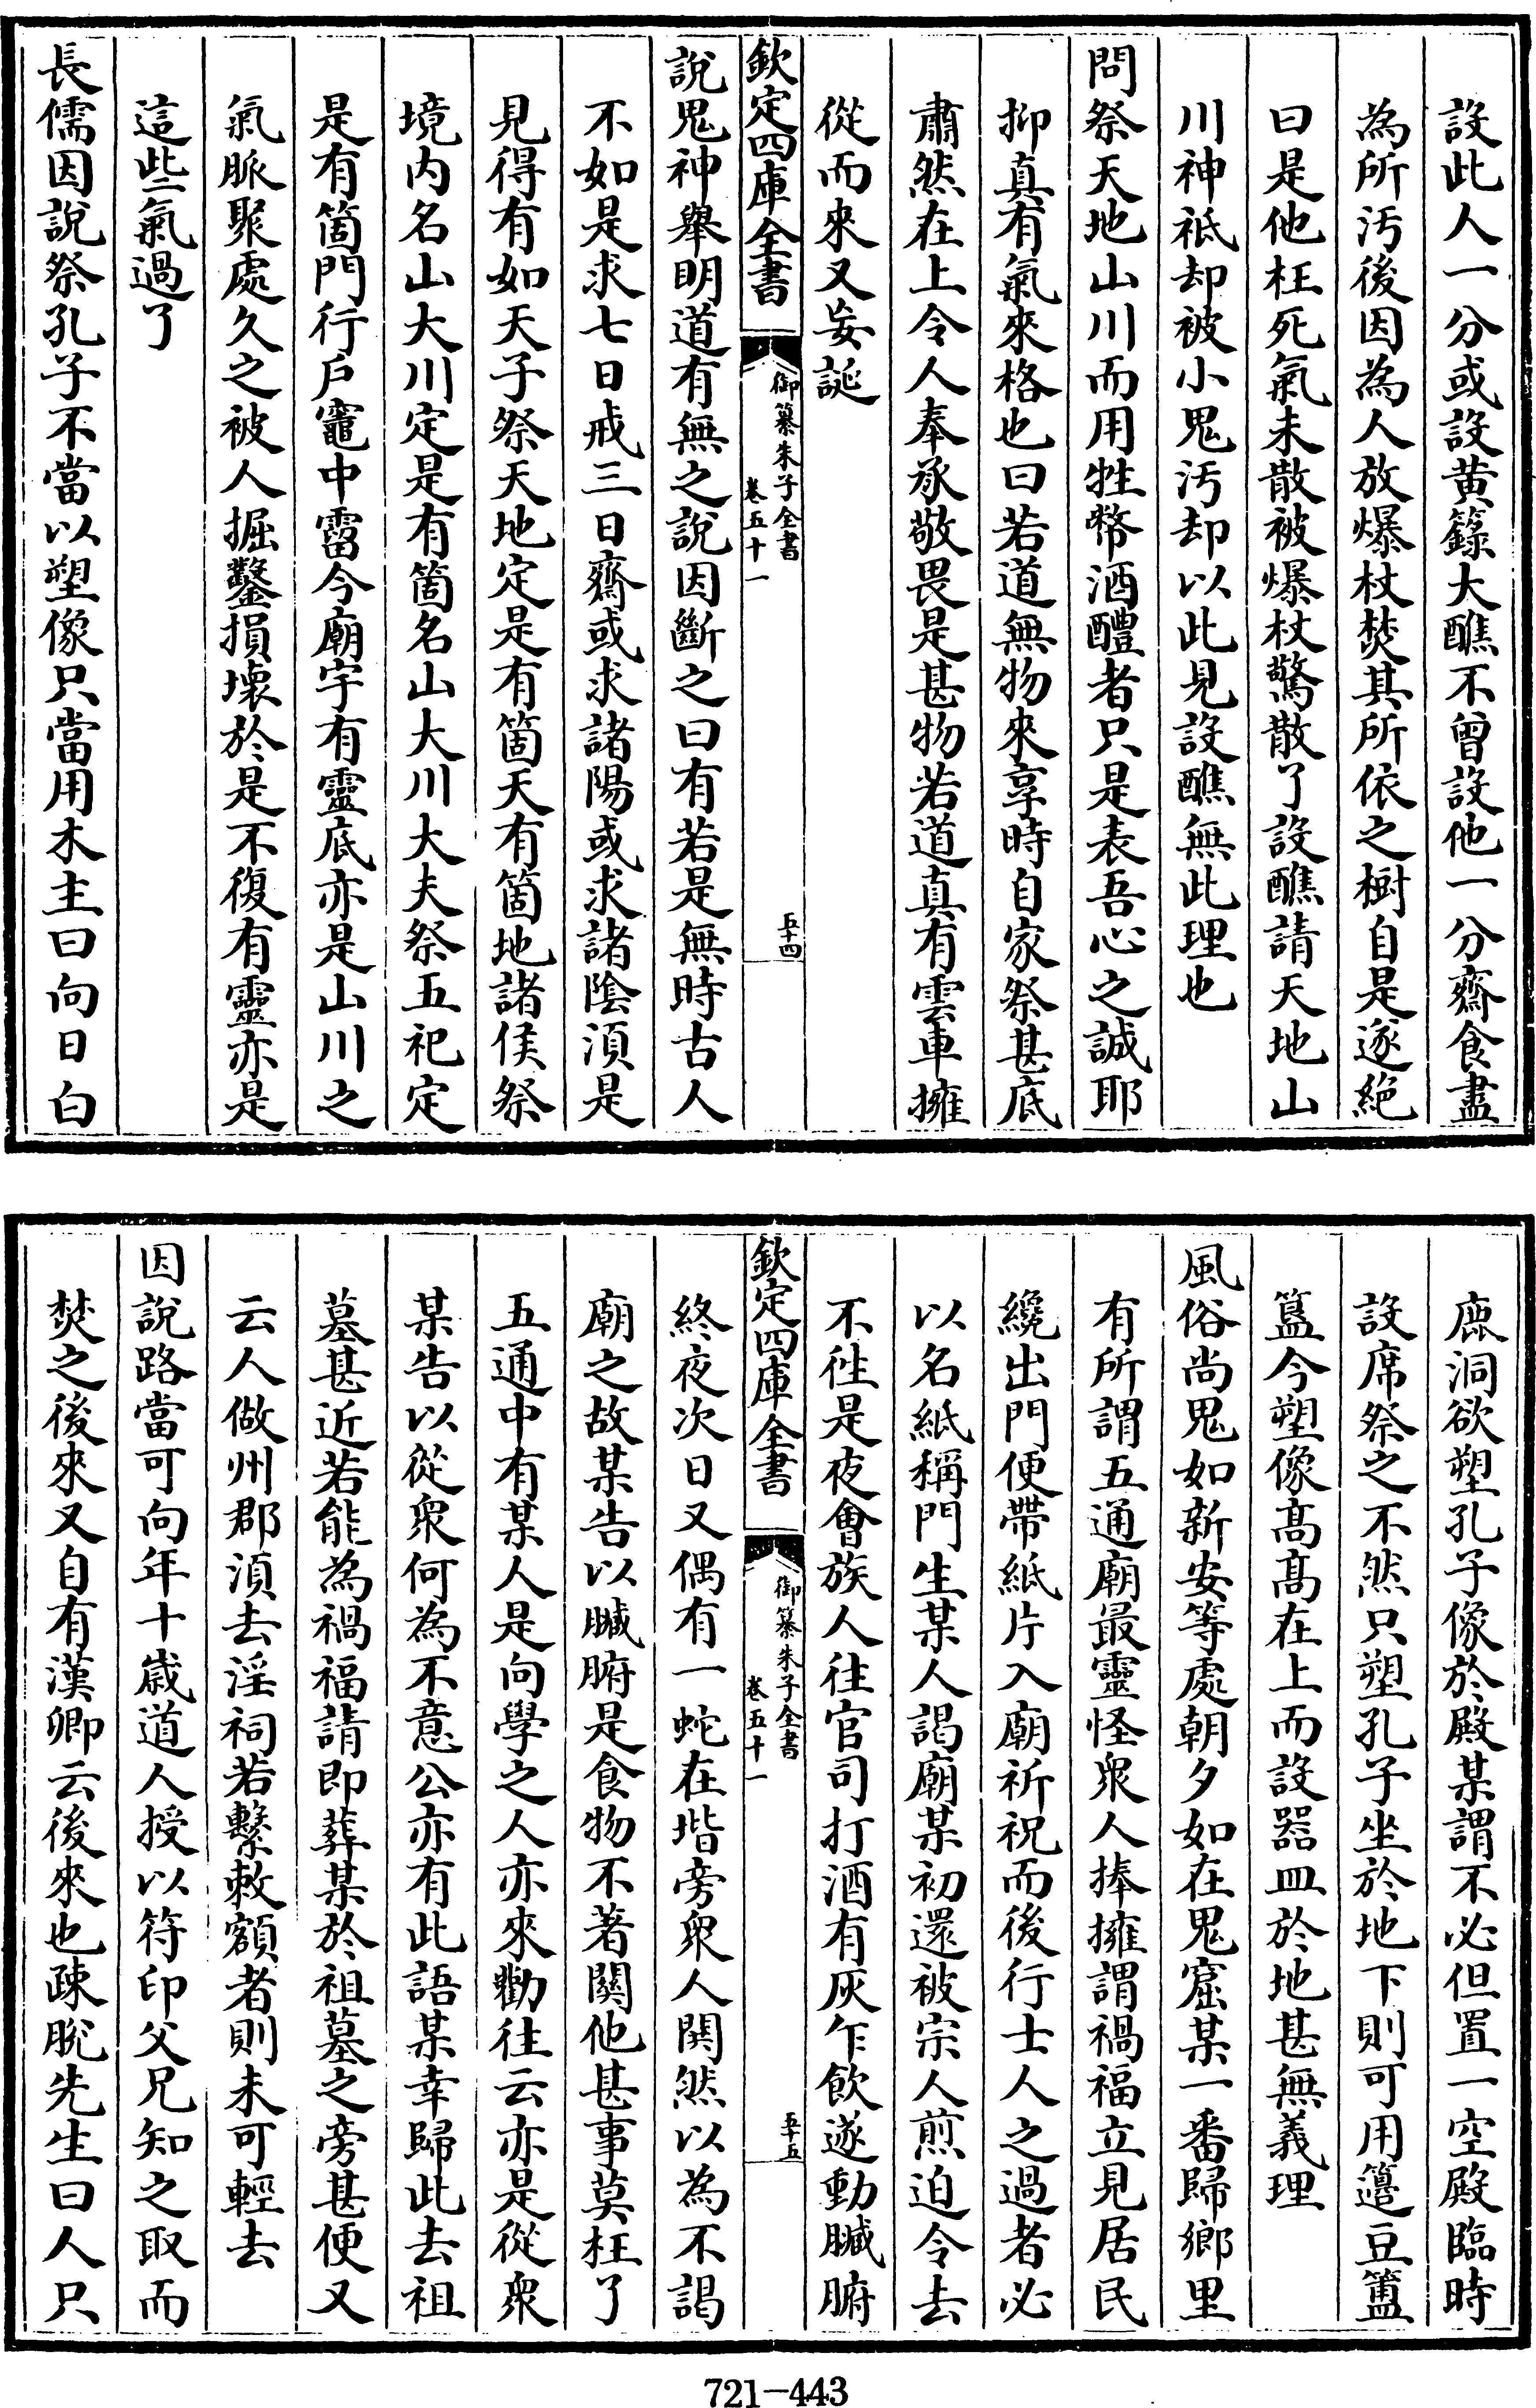 設此人一分或設黄籙大醮不曾設他一分齋食盡
為所汚後因為人放爆杖焚其所依之樹自是遂絶
曰是他枉死氣未散被爆杖驚散了設醮請天地山
川神祇却被小鬼汚却以此見設醮無此理也
問祭天地山川而用牲幣酒醴者只是表吾心之誠耶
抑真有氣來格也曰若道無物來享時自家祭甚底
肅然在上令人奉承敬畏是甚物若道真有雲車擁
從而來又妄誕
欽定四庫全書
御纂朱子全書
卷五十一
五十四
說鬼神舉明道有無之說因斷之曰有若是無時古人
不如是求七日戒三日齋或求諸陽或求諸陰湏是
見得有如天子祭天地定是有箇天有箇地諸侯祭
境内名山大川定是有箇名山大川大夫祭五祀定
是有箇門行户竈中霤今廟宇有靈底亦是山川之
氣脈聚處久之被人掘鑿損壞於是不復有靈亦是
這些氣過了
長儒因說祭孔子不當以塑像只當用木主曰向日白
鹿洞欲塑孔子像於殿某謂不必但置一空殿臨時
設席祭之不然只塑孔子坐於地下則可用籩豆簠
簋今塑像髙髙在上而設器皿於地甚無義理
風俗尚鬼如新安等處朝夕如在鬼窟某一番歸鄉里
有所謂五通廟最靈怪衆人捧擁謂禍福立見居民
纔出門便帶紙片入廟祈祝而後行士人之過者必
以名紙稱門生某人謁廟某初還被宗人煎迫令去
不徃是夜會族人往官司打酒有灰乍飲遂動臟腑
欽定四庫全書
御纂朱子全書
卷五十一
五十五
終夜次日又偶有一蛇在堦旁衆人閧然以為不謁
廟之故某告以臟腑是食物不著關他甚事莫枉了
五通中有某人是向學之人亦來勸往云亦是從衆
某告以從衆何為不意公亦有此語某幸歸此去祖
墓甚近若能為禍福請即葬某於祖墓之旁甚便又
云人做州郡湏去淫祠若繫敕額者則未可輕去
因說路當可向年十歲道人授以符印父兄知之取而
焚之後來又自有漢卿云後來也疎脱先生曰人只
721—443